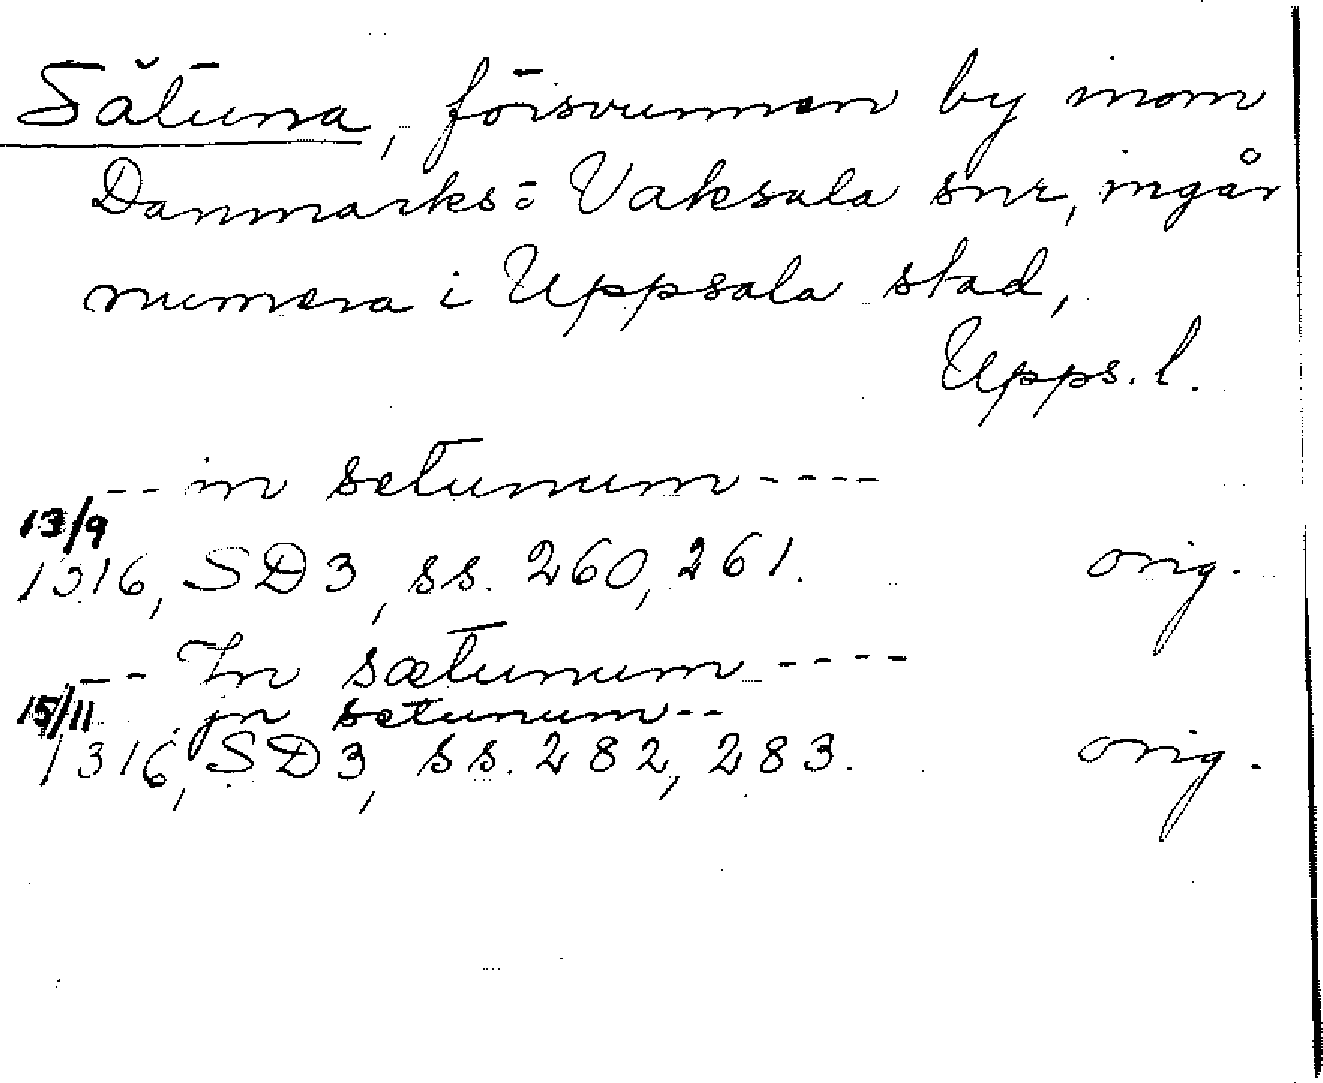 Sätuna, försvunnen by inom
Danmarks= Vaksala snr, ingår
numera i Uppsala stad,
Upps. l.
-- in setunum ----
13/9
1316, SD3, ss. 260, 261. orig.
-- In sætunum ----
15/11 jn setunum --
1316, SD3, ss. 282, 283. orig.